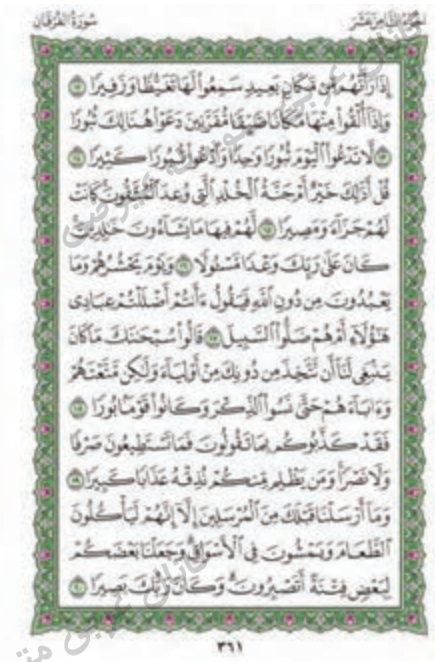 سُورَةُ الفُرْقَان
الجُزْءُ الثَّامِنَ عَشَرَ
إِذَا رَأَتْهُم مِّن مَّكَانٍ بَعِيدٍ سَمِعُوا۟ لَهَا تَغَيُّظًا وَزَفِيرًا ١٢
وَإِذَآ أُلْقُوا۟ مِنْهَا مَكَانًا ضَيِّقًا مُّقَرَّنِينَ دَعَوْا۟ هُنَالِكَ ثُبُورًا
١٣ لَّا تَدْعُوا۟ ٱلْيَوْمَ ثُبُورًا وَٰحِدًا وَٱدْعُوا۟ ثُبُورًا كَثِيرًا ١٤
قُلْ أَذَٰلِكَ خَيْرٌ أَمْ جَنَّةُ ٱلْخُلْدِ ٱلَّتِى وُعِدَ ٱلْمُتَّقُونَ كَانَتْ
لَهُمْ جَزَآءً وَمَصِيرًا ١٥ لَّهُمْ فِيهَا مَا يَشَآءُونَ خَٰلِدِينَ
كَانَ عَلَىٰ رَبِّكَ وَعْدًا مَّسْـُٔولًا ١٦ وَيَوْمَ يَحْشُرُهُمْ وَمَا
يَعْبُدُونَ مِن دُونِ ٱللَّهِ فَيَقُولُ ءَأَنتُمْ أَضْلَلْتُمْ عِبَادِى
هَٰٓؤُلَآءِ أَمْ هُمْ ضَلُّوا۟ ٱلسَّبِيلَ ١٧ قَالُوا۟ سُبْحَٰنَكَ مَا كَانَ
يَنۢبَغِى لَنَآ أَن نَّتَّخِذَ مِن دُونِكَ مِنْ أَوْلِيَآءَ وَلَٰكِن مَّتَّعْتَهُمْ
وَءَابَآءَهُمْ حَتَّىٰ نَسُوا۟ ٱلذِّكْرَ وَكَانُوا۟ قَوْمًۢا بُورًا ١٨
فَقَدْ كَذَّبُوكُم بِمَا تَقُولُونَ فَمَا تَسْتَطِيعُونَ صَرْفًا
وَلَا نَصْرًا وَمَن يَظْلِم مِّنكُمْ نُذِقْهُ عَذَابًا كَبِيرًا ١٩
وَمَآ أَرْسَلْنَا قَبْلَكَ مِنَ ٱلْمُرْسَلِينَ إِلَّآ إِنَّهُمْ لَيَأْكُلُونَ
ٱلطَّعَامَ وَيَمْشُونَ فِى ٱلْأَسْوَاقِ وَجَعَلْنَا بَعْضَكُمْ
لِبَعْضٍ فِتْنَةً أَتَصْبِرُونَ وَكَانَ رَبُّكَ بَصِيرًا ٢٠
٣٦١